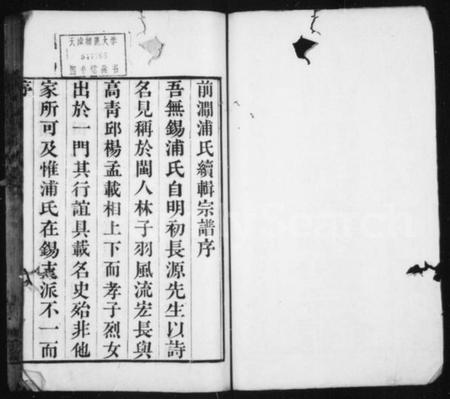 前澗浦氏續輯宗譜序
吾無錫浦氏自明初長源先生以詩
名見稱於閩人林子羽風流宏長與
高青邱楊孟載相上下而孝子烈女
出於一門其行誼具載名史殆非他
家所可及惟浦氏在錫支派不一而
序
天津師範大學
圖書館藏書